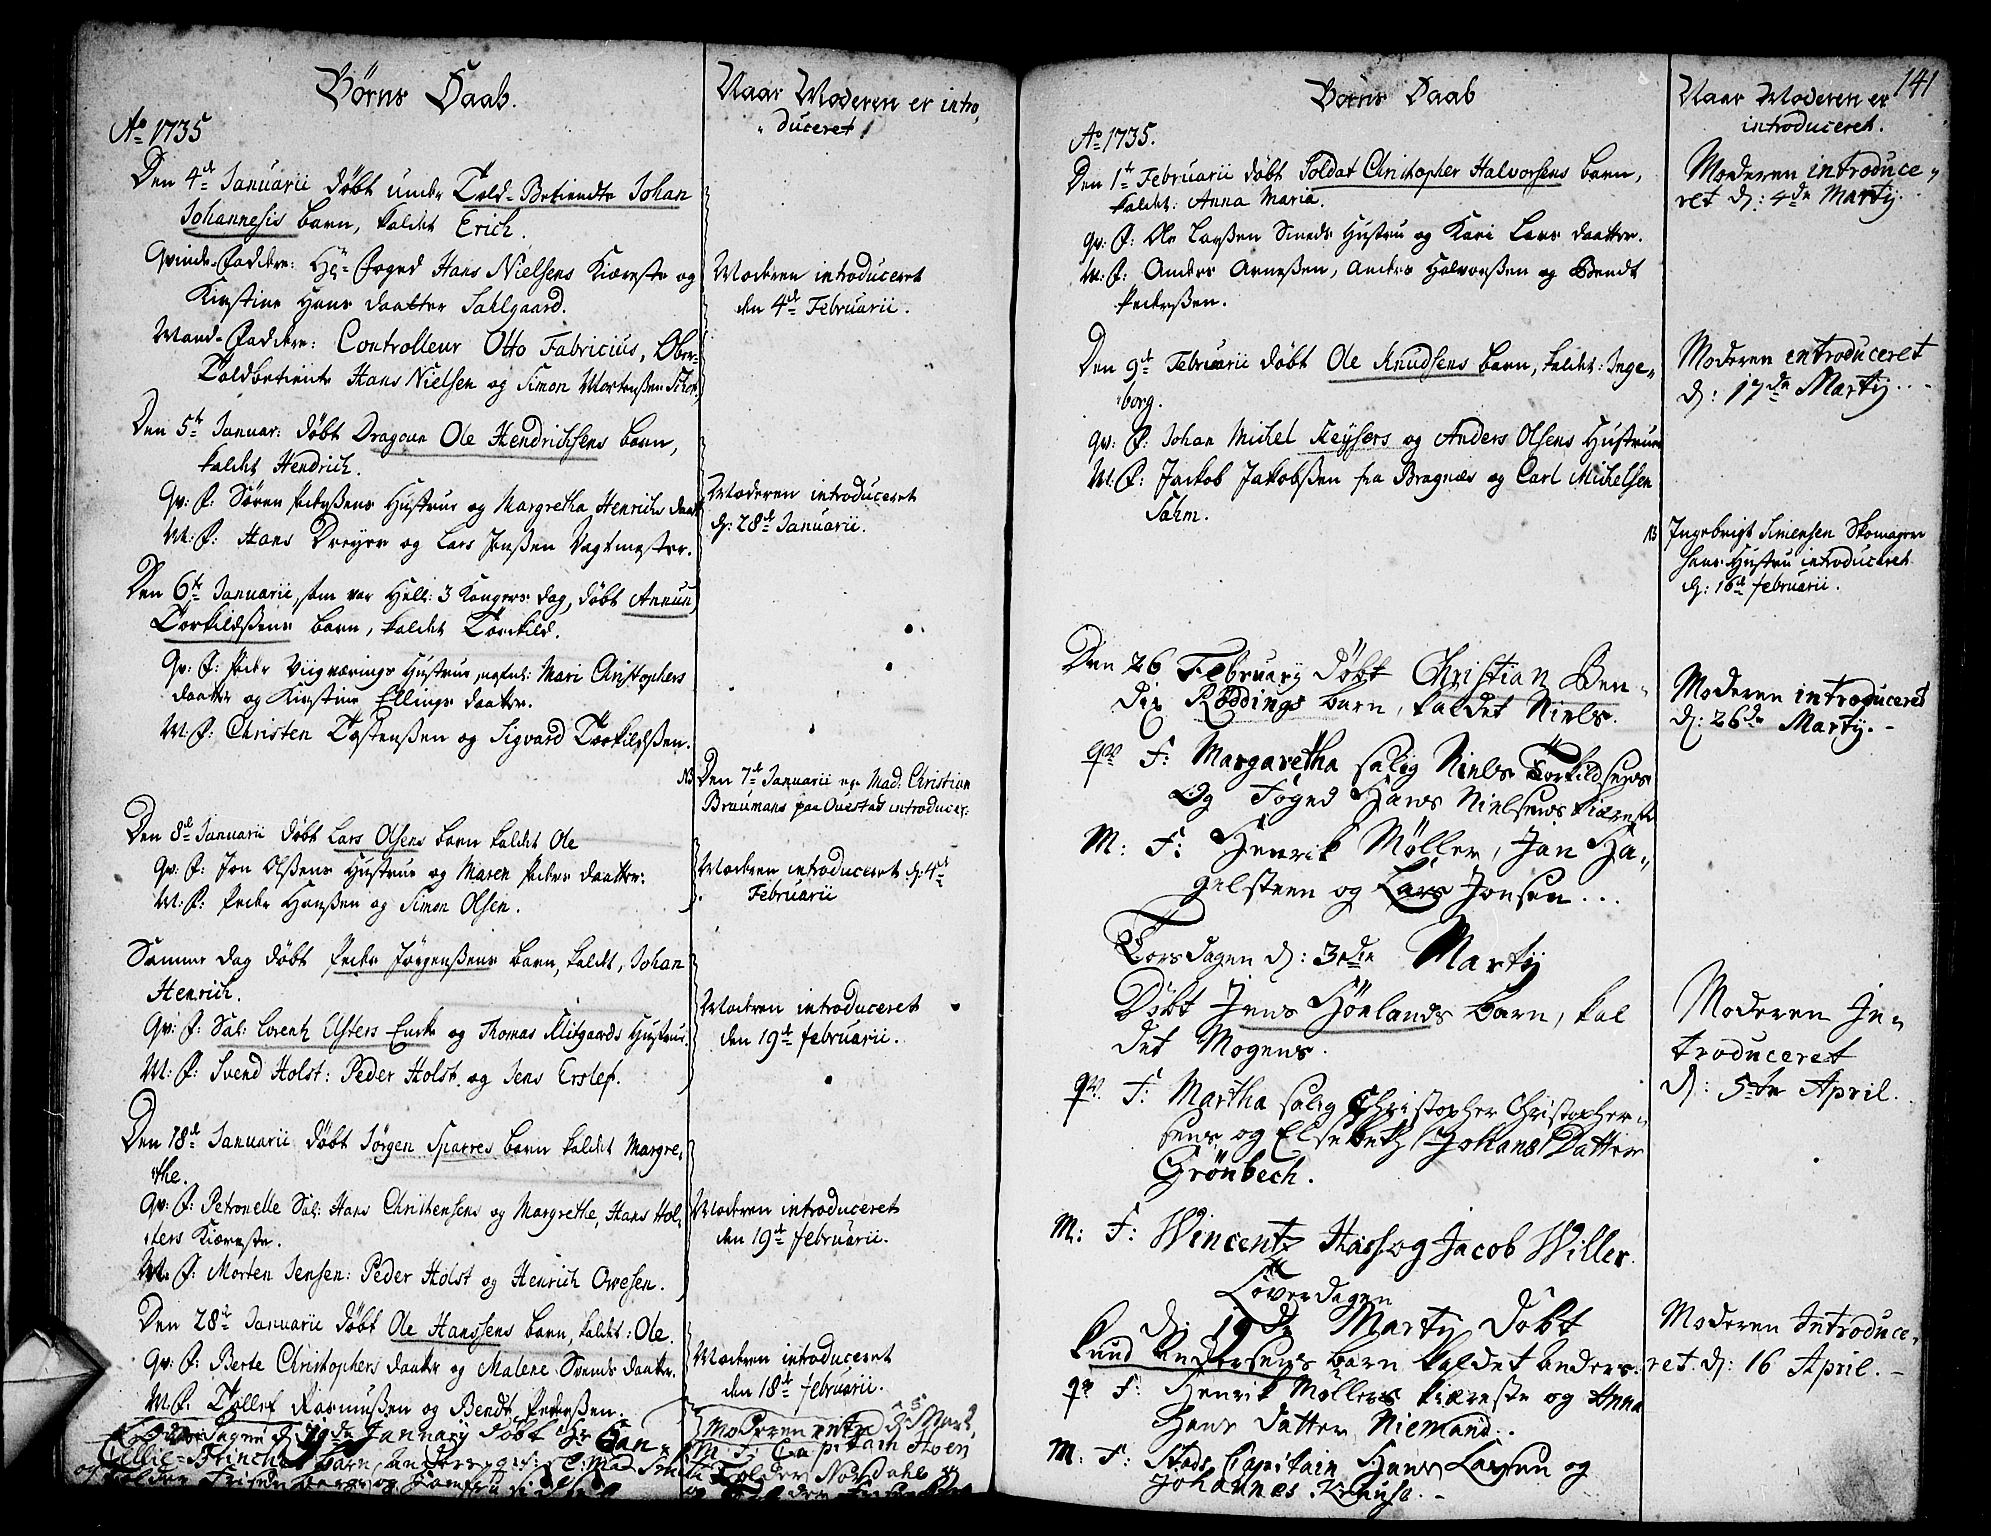 Börns Daab.
Ao 1735
Den 4de Januarii döbt under Told-Betiendte Johan
Johannesis barn, kaldet Erich.
Qvinde-Faddere: Hr. Foged Hans Nielsens Kiæreste og
Kirstine Hans daatter Sahlgaard.
Mand-Faddere: Controlleur Otto Fabricius, Ober-
Toldbetiente Hans Nielsen og Simon Mortenßen
Den 5te Januar: döbt Dragoun Ole Hendrichsens barn,
kaldet Hendrich.
Qv: F: Sören Pederßens Hustrue og Margretha Henrichs daat
M: F: Hans Dreyer og Lars Jenßen Vagtmester.
Den 6te Januarii, som var Hell: 3 Kongers dag, döbt Annun
Torkildßens barn, kaldet Torkild.
Qv: F: Peder Viigværings Hustrue, Mari Christophers
daatter og Kirstine Ellings daatter.
M: F: Christen Tostenßen og Sigvard Torkildßen.
Den 8de Januarii döbt Lars Olsens barn kaldet Ole
Qv: F: Jon Olßens Hustrue og Maren Peders daatter.
M: F: Peder Hanßen og Simon Olsen.
Samme dag döbt Peder Jörgenßens barn, kaldet, Johan
Henrich.
Qv: F: Sal: Lorentz Ulsters Encke og Thomas Klitgaards Hustrue.
M: F: Svend Holst: Peder Holst og Jens Erslef.
Den 18de Januarii döbt Jörgen Sparres barn kaldet Margre-
the.
Qv: F: Petronelle Sal: Hans Christensens og Margrethe, Hans Hol-
sters Kiæreste.
M: F: Morten Jensen: Peder Holst og Henrich Ovesen.
Den 28de Januarii döbt Ole Hanssens barn, kaldet: Ole.
Qv: F: Berte Christophers daatter og Malene Svends daatter.
M: F: Tollef Rasmußen og Bendt Pederßen.
Januarij döbt Hr
barn
Naar Moderen er intro-
duceret
Moderen introduceret
den 4de Februarii.
Moderen introduceret
d: 28de Januarii.
NB Den 7de Januarii er Mad: Christian
Bruumans paa Ouestad introducer:
Moderen introduceret d: 4de
Februarii
Moderen introduceret
den 19de februarii.
Moderen introduceret
den 19de februarii.
Moderen introduceret
den 18de februarii.
Moderen
M: F: Capitain
Nordahl
141
Börns Daab
Ao 1735.
Den 1te Februarii döbt Soldat Christopher Halvorsens barn,
kaldet: Anna Maria.
Qv: F: Ole Larßen Smeds Hustru og Kari Lars daatter.
M: F: Anders Arneßen, Anders Halvorßen og Bendt
Pederßen.
Den 9de Februarii döbt Ole Knudsens barn, kaldet: Inge-
borg.
Qv: F: Johan Michel Keysers og Anders Olsens Hustruer
M: F: Jackob Jakobßen fra Bragnæs og Carl Michelsen
Sahm.
Den 26 February Döbt Christian Ben-
dix Röddings barn, kaldet Niels.
qv F: Margaretha salig Niels Torkildsens
Og Foged Hans Nielsens kiæreste
M: F: Henrik Möller, Jan Ha-
gelsteen og Lars Jonsen...
Torsdagen d: 3die Martij
Döbt Jens Hörlands barn, kal
det Mogens.
qv. F: Martha salig Christopher Christopher-
sens og Elsebeth Johans Datter
Grönbech.
M: F: Wincentz Hass og Jacob Willer.
Löverdagen
d: 19de Martij Döbt
Knud Andersens barn kaldet Anders.
qv F: Henrik Möllers kiæreste og Anna
Hans Datter Niemand.
M: F: Stads Capitain Hans Larsen og
Johannes Kruuse. -
Naar Moderen er
introduceret.
Moderen introduce-
ret d: 4de Martij.
Moderen introduceret
d: 17de Martij.
NB Ingebrigt Simensen Skomager
hans Hustru introduceret
d: 16de februarii.
Moderen introduceret
d: 26de Martij. -
Moderen In-
troduceret
d: 5te April.
Moderen Introduce-
ret d: 16 April. -